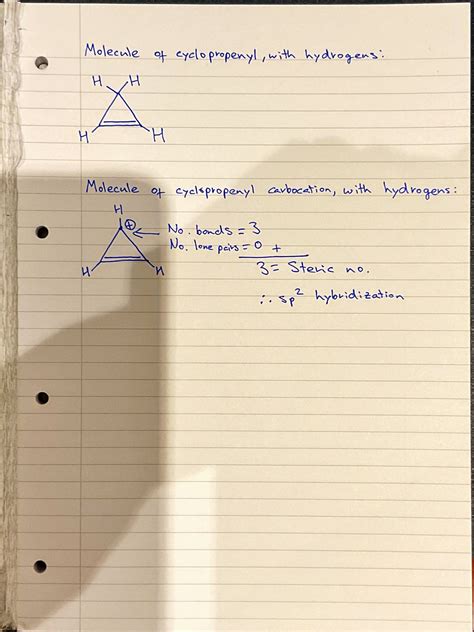 Molecule of cyclopropenyl, with hydrogens:
H H
H H
Molecule of cyclopropenyl carbocation, with hydrogens:
H
⊕ ← No. bonds = 3
No. lone pairs = 0 +
H H
3 = Steric no.
∴ sp² hybridization